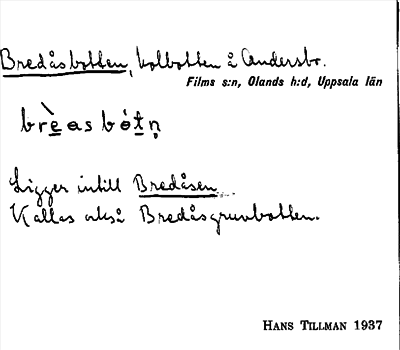 Bredåsbotten, kolbotten å Andersbr.
Films s:n, Olands h:d, Uppsala län
brèas bótn̥
Ligger intill Bredåsen.
Kallas också Bredåsgruvbotten.
HANS TILLMAN 1937